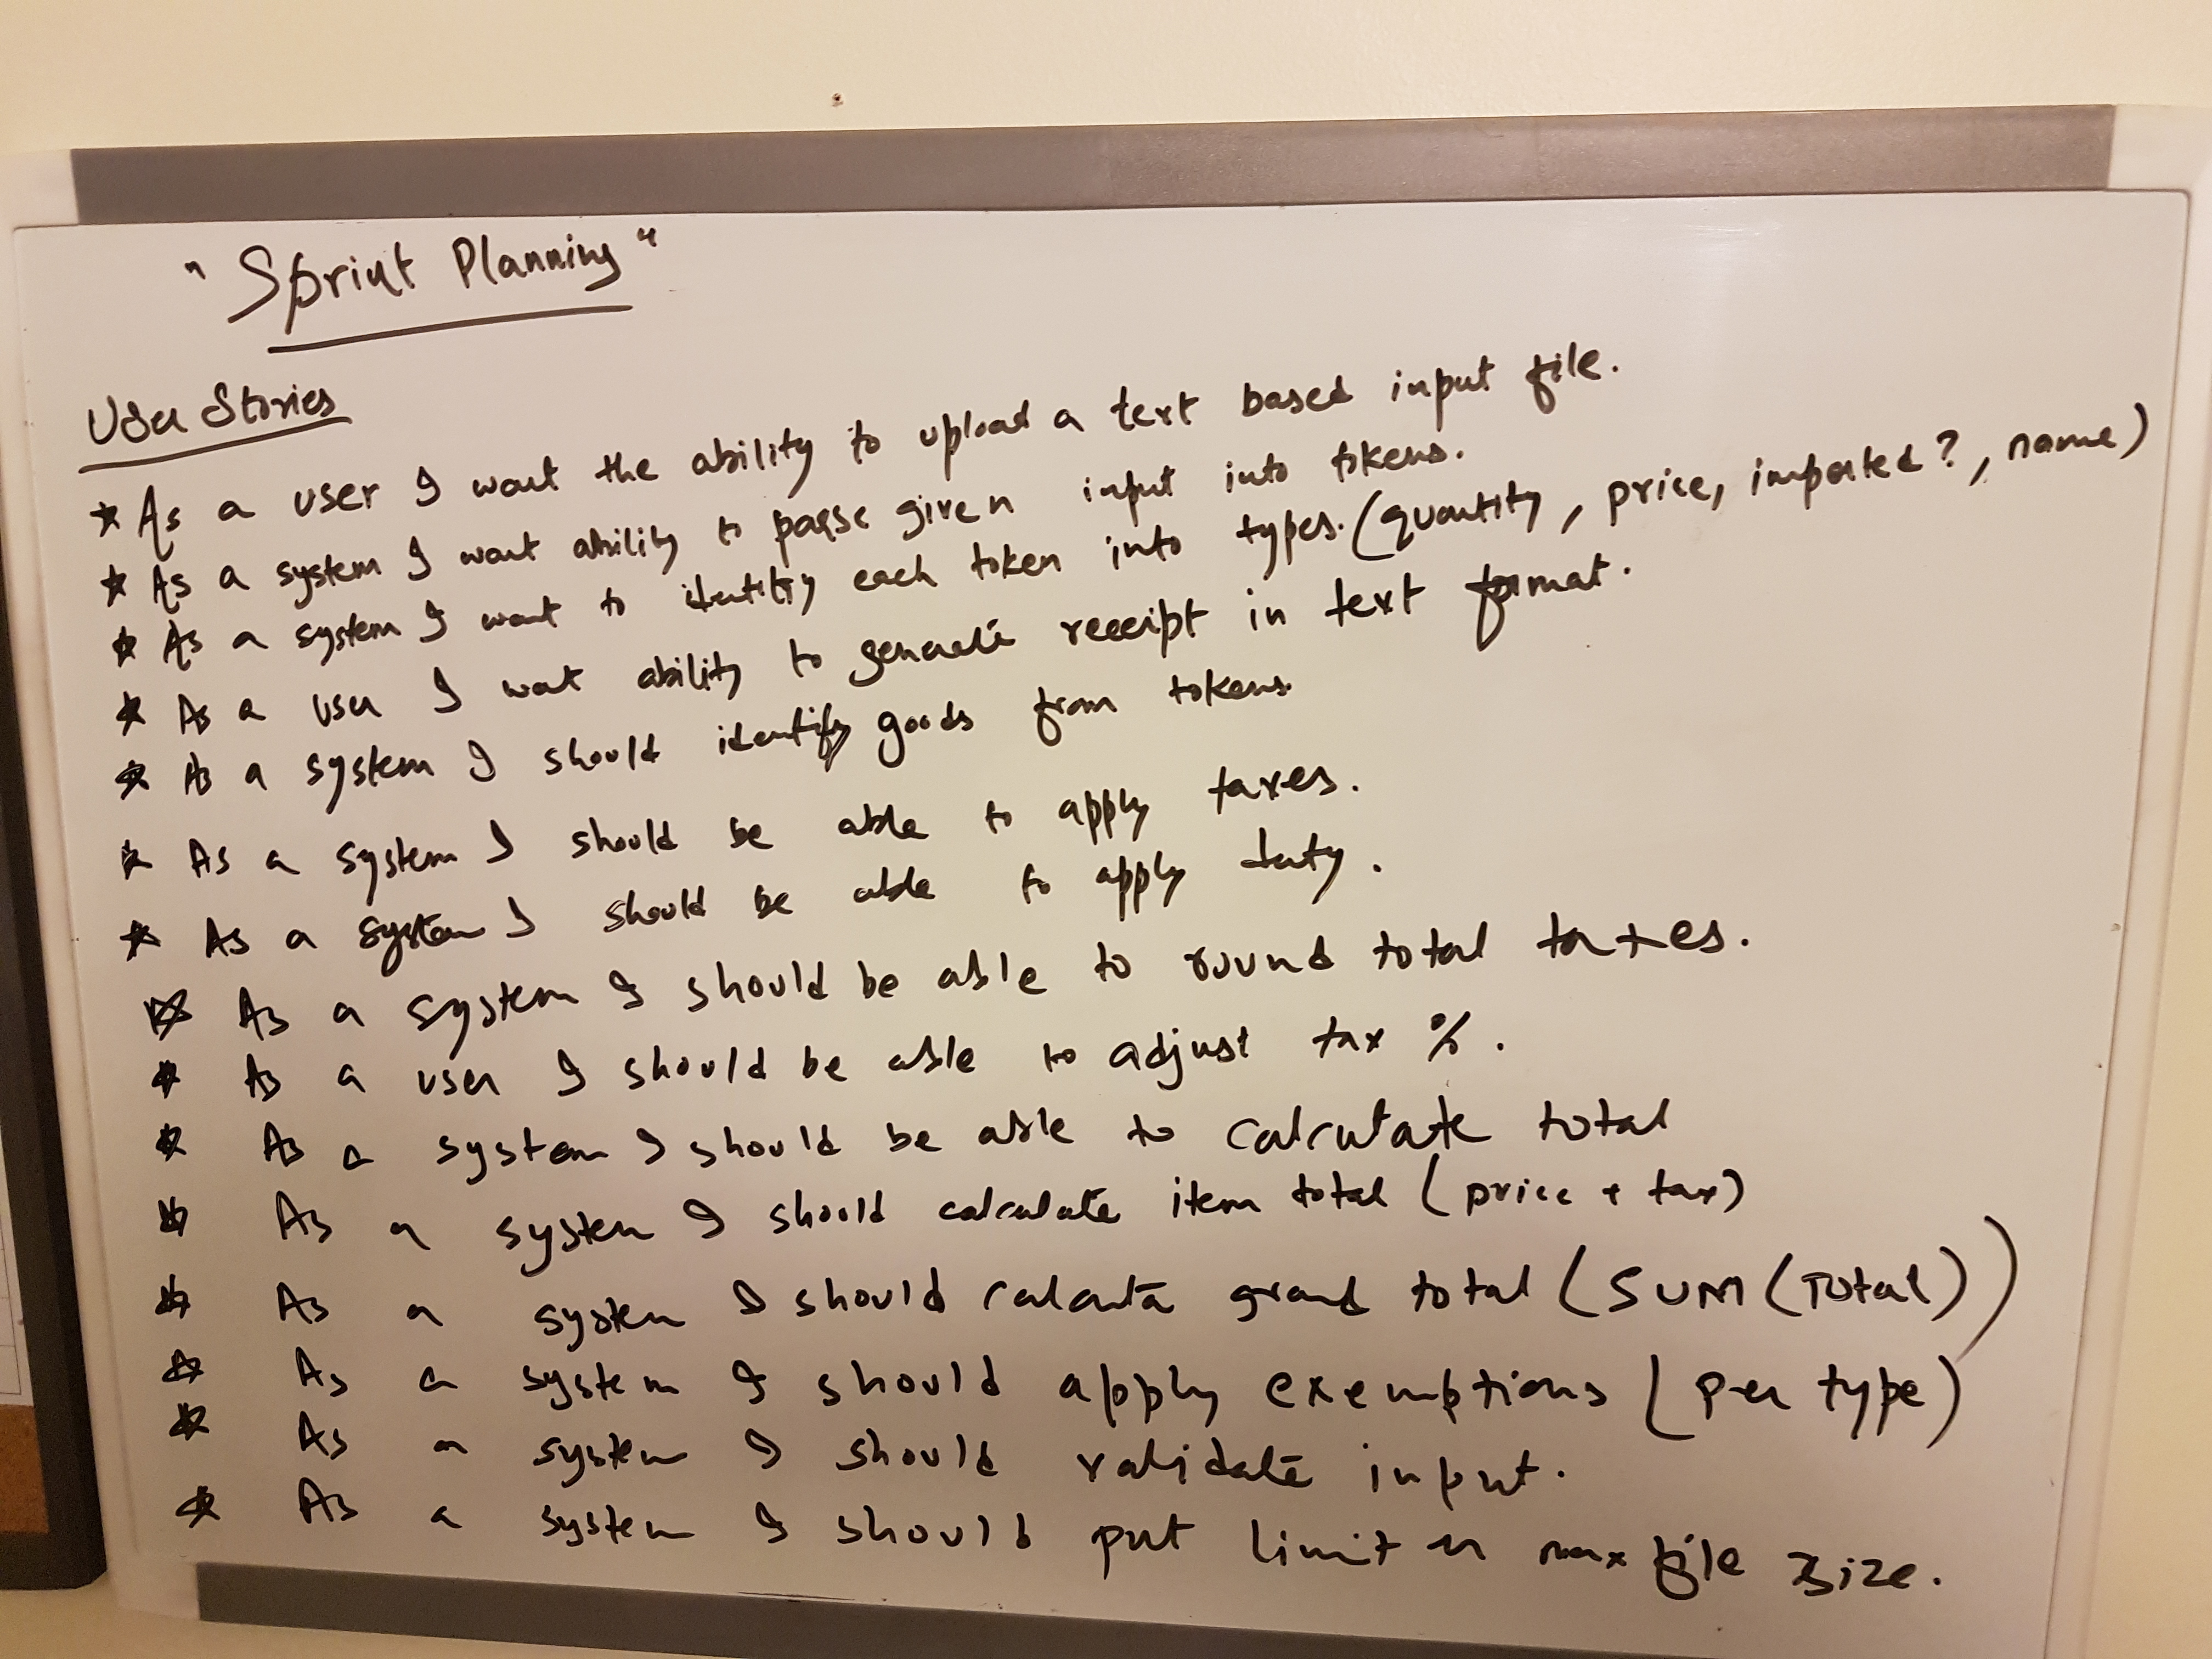 "Sprint Planning"
User Stories
* As a user I want the ability to upload a text based input file.
* As a system I want ability to parse given input into tokens.
* As a system I want to identify each token into types. (quantity, price, imported?, name)
* As a user I want ability to generate receipt in text format.
* As a system I should identify goods from tokens.
* As a system I should be able to apply taxes.
* As a system I should be able to apply duty.
* As a system I should be able to round total taxes.
* As a user I should be able to adjust tax %.
* As a system I should be able to calculate total
* As a system I should calculate item total (price + tax)
* As a system I should calculate grand total (SUM (Total))
* As a system I should apply exemptions (per type)
* As a system I should validate input.
* As a system I should put limit on max file size.